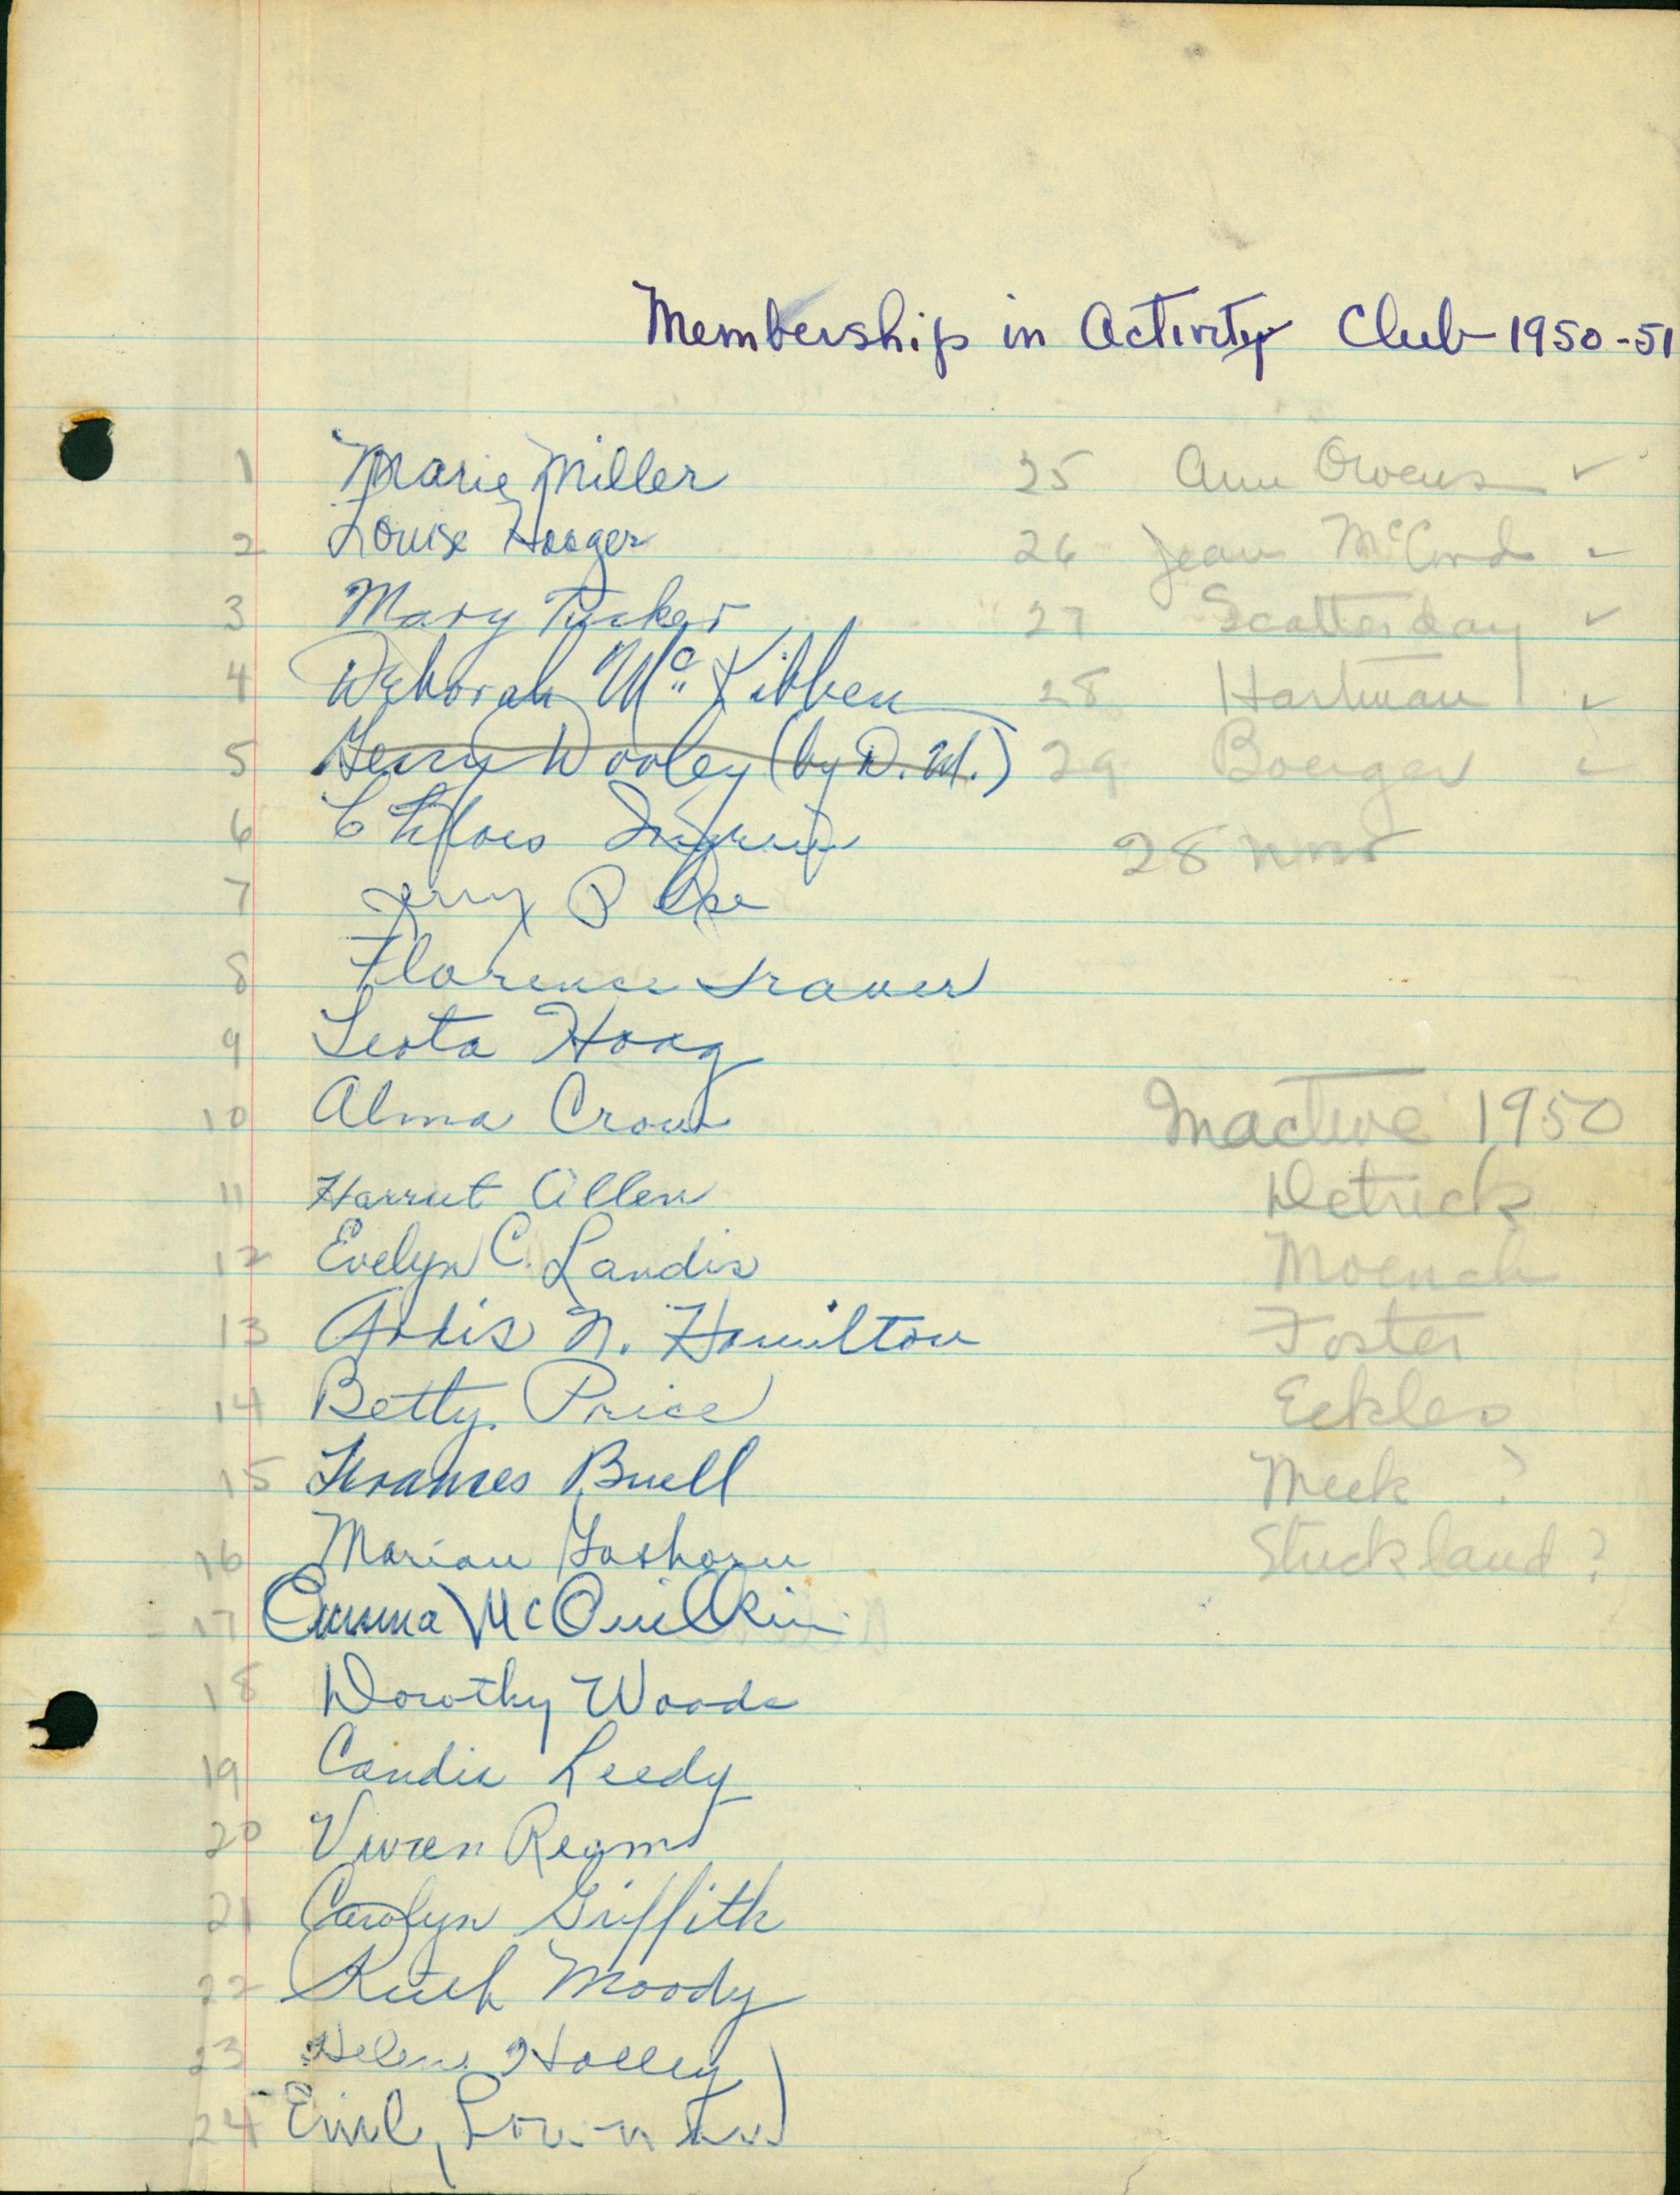 Membership in Activity Club-1950-51
1 Marie Miller
2 Louise Hosger
3 Mary Tucker
4 Deborah McKibben
5 Gerry Wooley (by D. M.)
6
7 Jerry P
8 Florence
9 Leota Hoag
10 Alma Crow
11 Harriet Allen
12 Evelyn C. Landis
13 Ardis N. Hamilton
14 Betty Price
15 Frances Buell
16 Marian Goshorn
17 Emma McQuilkin
18 Dorothy Woods
19 Candis Leedy
20 Vivien Regms
21 Carolyn Griffith
22 Ruth Moody
23 Helen Holley
24
25 Ann Owens ✓
26 Jean McCord ✓
27 Scatterday ✓
28 Hartman ✓
29 Boerger ✓
28
Inactive 1950
Detrick
Moench
Foster
Eckles
Meek ?
Stuckland ?